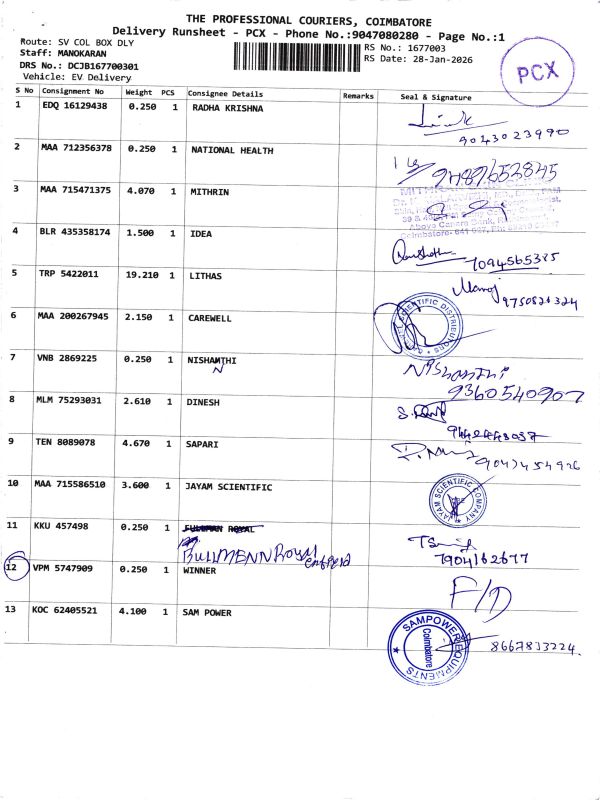 THE PROFESSIONAL COURIERS, COIMBATORE
Delivery Runsheet - PCX - Phone No.:9047080280 - Page No.:1
Route: SV COL BOX DLY
Staff: MANOKARAN
DRS No.: DCJB167700301
Vehicle: EV Delivery
RS No.: 1677003
RS Date: 28-Jan-2026
PCX
S No Consignment No Weight PCS Consignee Details Remarks Seal & Signature
1 EDQ 16129438 0.250 1 RADHA KRISHNA
9043023990
2 MAA 712356378 0.250 1 NATIONAL HEALTH
9489652845
3 MAA 715471375 4.070 1 MITHRIN
4 BLR 435358174 1.500 1 IDEA
7094565385
5 TRP 5422011 19.210 1 LITHAS
Manoj 9750821324
6 MAA 200267945 2.150 1 CAREWELL
SCIENTIFIC DISTRIBUTORS
7 VNB 2869225 0.250 1 NISHANTHI
N
Nishanthi
9360540907
8 MLM 75293031 2.610 1 DINESH
9 TEN 8089078 4.670 1 SAPARI
10 MAA 715586510 3.600 1 JAYAM SCIENTIFIC
JAYAM SCIENTIFIC COMPANY
11 KKU 457498 0.250 1
BULLMENN ROYAL ENFIELD
7904162677
12 VPM 5747909 0.250 1 WINNER
F/D
13 KOC 62405521 4.100 1 SAM POWER
SAMPOWER EQUIPMENTS
Coimbatore
8667833224